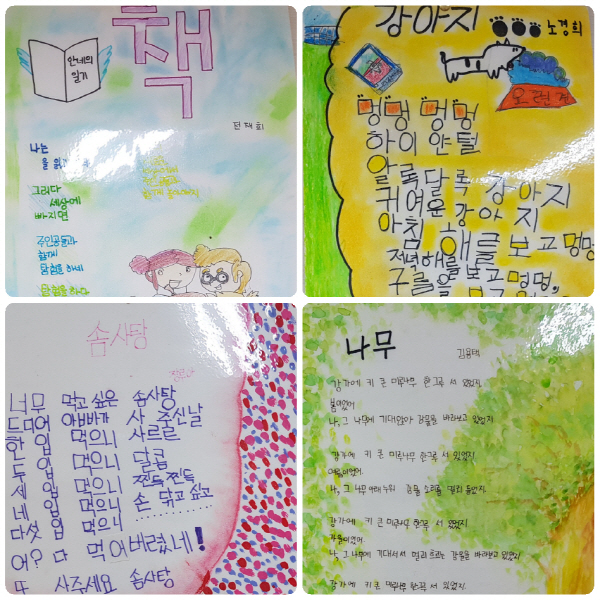 책
안네의
일기
전재희
나는
을 읽
그러다
세상에
빠지면
주인공들과
함께
탐험을 하네
탐험을 하다
강아지
노경희
멍멍 멍멍
하이얀 털
알록달록 강아지
귀여운 강아지
아침 해를 보고 멍멍
저녁해를보고 멍멍
구름을 보고 멍멍,
솜사탕
너무 먹고 싶은 솜사탕
드디어 아빠가 사 주신날
한 입 먹으니 사르르
두 입 먹으니 달콤
세 입 먹으니 쫀득쫀득
네 입 먹으니 손 닦고 싶고
다섯 입 먹으니 ............
어? 다 먹어버렸네!
또 사주세요 솜사탕
나무
김용택
강가에 키 큰 미루나무 한그루 서 있었지
봄이었어
나, 그 나무에 기대앉아 강물을 바라보고 있었지
강가에 키 큰 미루나무 한그루 서 있었지
여름이었어
나, 그 나무 아래 누워 강물 소리를 멀리 들었지
강가에 키 큰 미루나무 한그루 서 있었지
가을이었어
나, 그 나무에 기대서서 멀리 흐르는 강물을 바라보고 있었지
강가에 키 큰 미루나무 한그루 서 있었지.